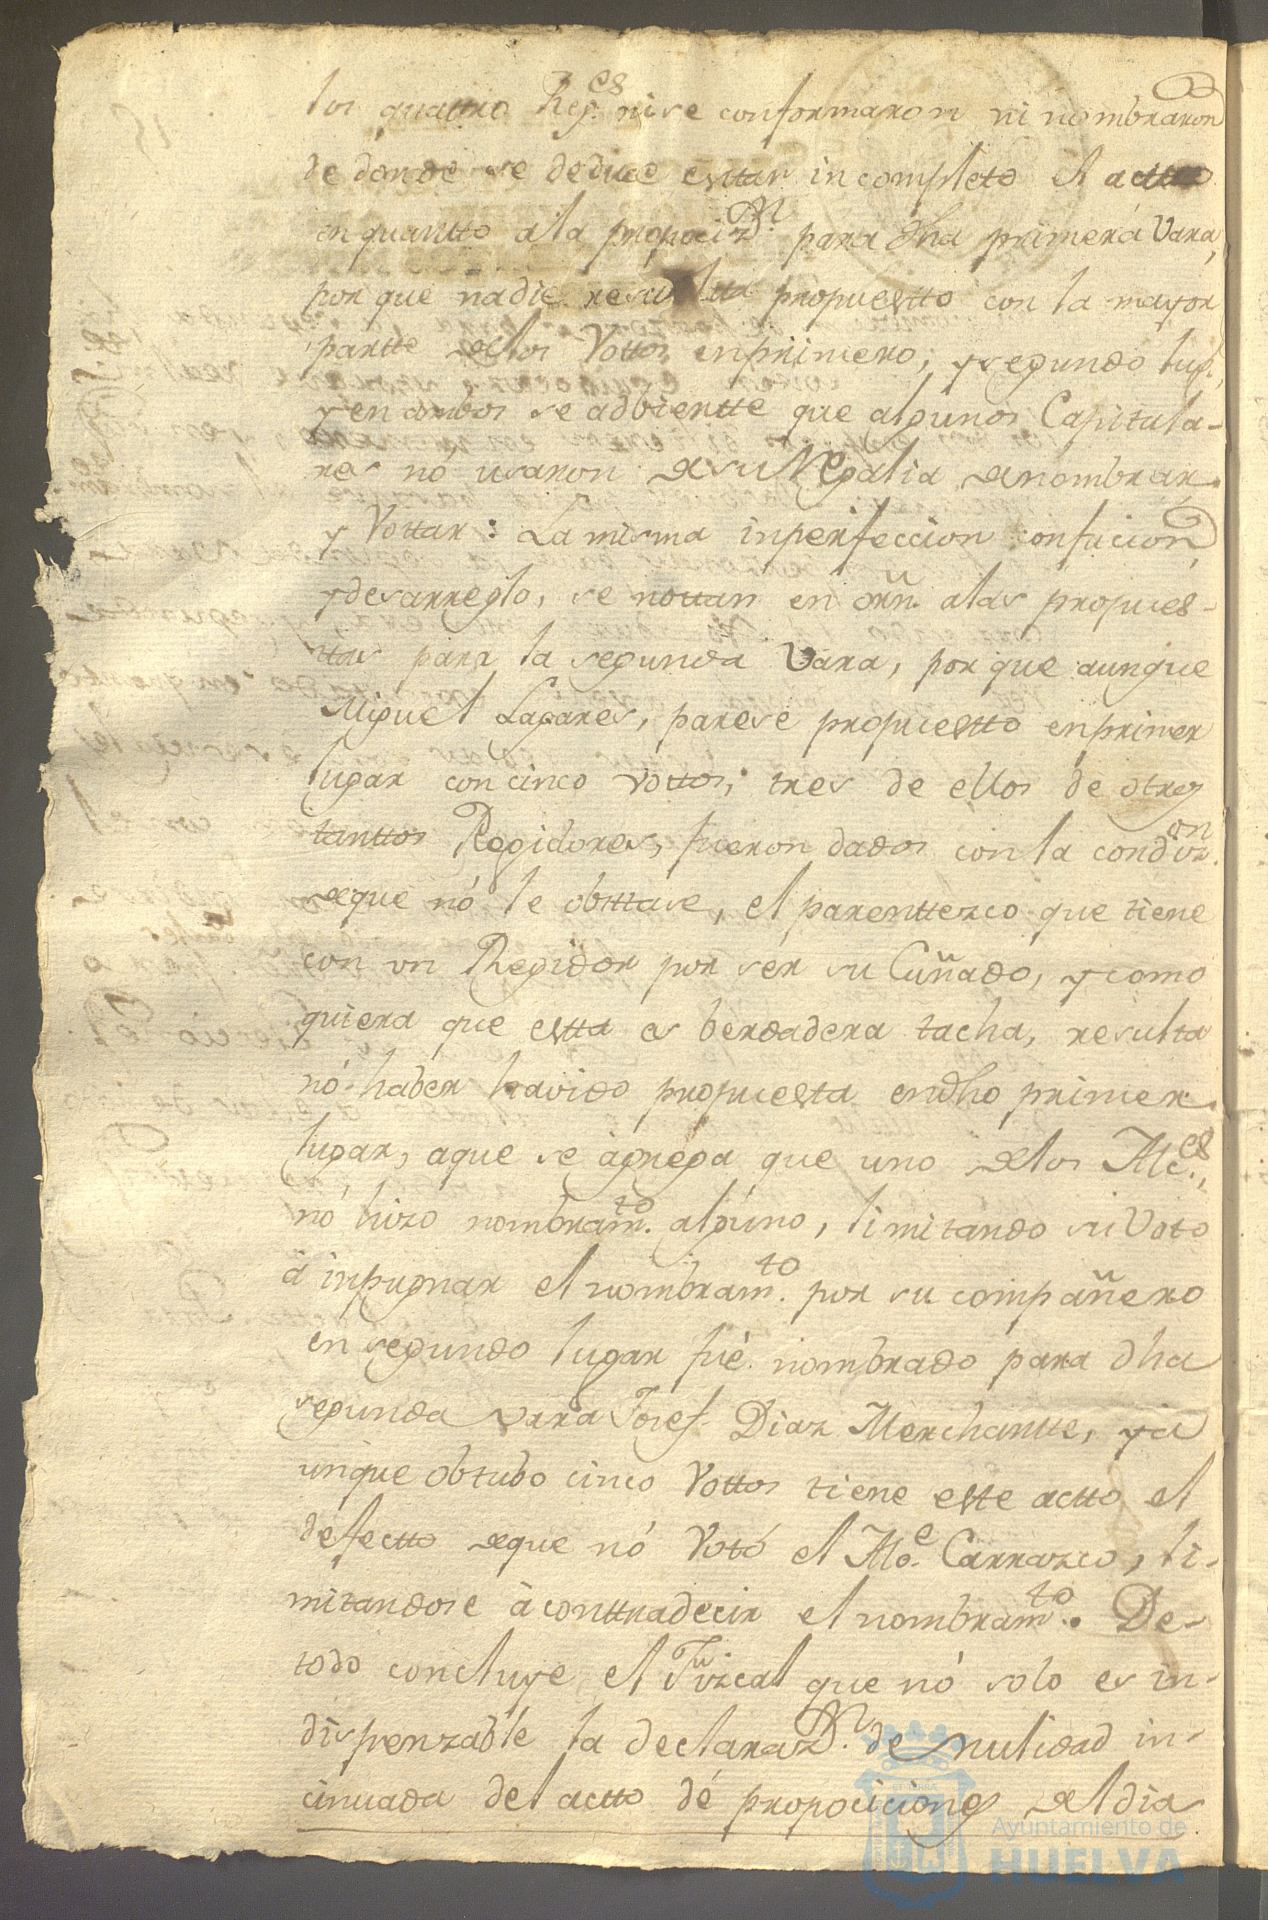 los quattro Reg.es ni se conformaron ni nombraron
de donde se deduce esttar incompleto el actto
en quantto ala propociz.on para dha primera Vara,
por que nadie resultta propuestto con la mayor
partte delos Vottos en primero, y segundo lug.r,
y en ambos se adbiertte que algunos Capitula-
res nó usaron de su Regalia de nombrar
y Vottar: La misma inperfeccion confucion
y desarreglo, se nottan en orn. alas propues-
ttas para la segunda Vara, por que aunque
Miguel Lagares, parese propuestto en primer
lugar con cinco vottos, tres de ellos de otros
tanttos Regidores, fueron dados con la condiz.on
de que nó le obsttase, el parenttezco que tiene
con un Regidor por ser su Cuñado, y como
quiera que estta es berdadera tacha, resulta
nó haber havido propuesta en dho primer
lugar, aque se agrega que uno delos Alc.es,
nó hizo nombram.to alguno, limitando su Voto
á inpugnar el nombram.to por su compañero
en segundo lugar fué nombrado para dha
segunda vara Josef Diaz Merchantte, y á
unque obtubo cinco Vottos tiene este actto el
defectto de que nó Votó el Alc.e Carrazco, li-
mitandose á conttradecir el nombram.to. De-
todo concluye el Fiscal que nó solo es in-
dispenzable la declaraz.on de nulidad in-
cinuada del actto dé propociciones del dia
Ayuntamiento de
HUELVA